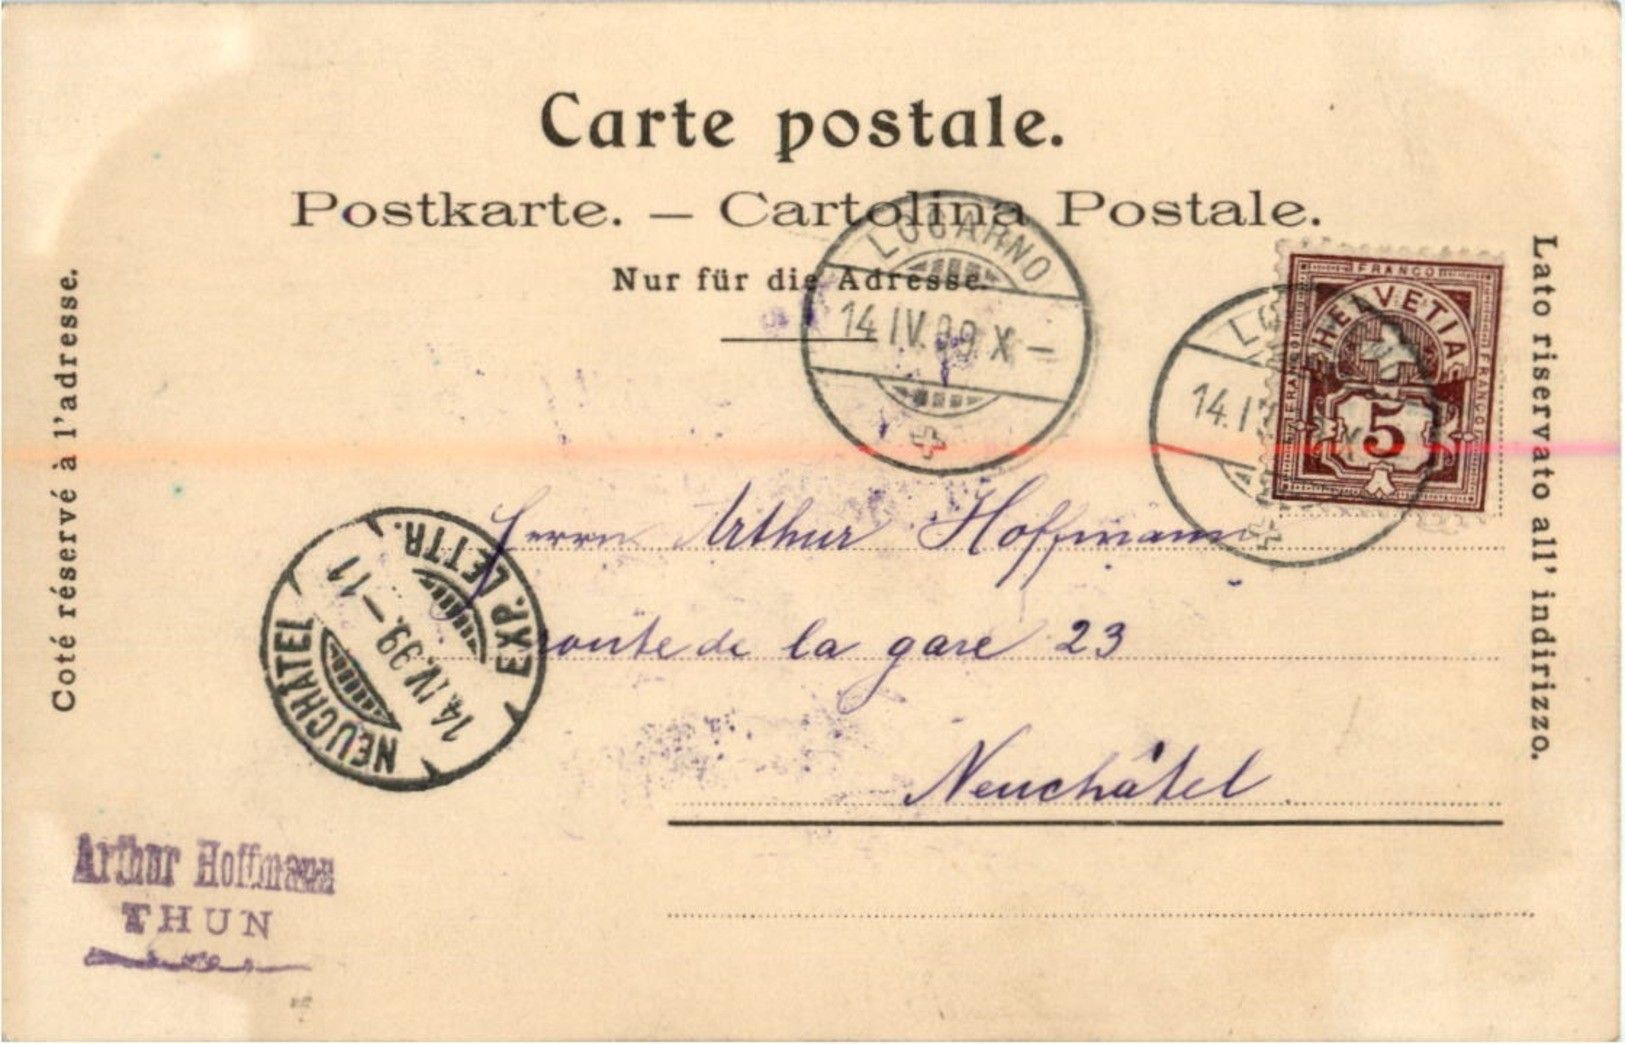 Carte postale.
Postkarte. — Cartolina Postale.
Nur für die Adresse.
Coté réservé à l'adresse.
Lato riservato all' indirizzo.
LOCARNO
14 IV. 99 X —
FRANCO
HELVETIA
FRANCO
FRANCO
5
14. I
Herrn Arthur Hoffmann
route de la gare 23
Neuchâtel
EXP. LETTR.
14. IV. 99. — 11
NEUCHÂTEL
Arthur Hoffmann
THUN